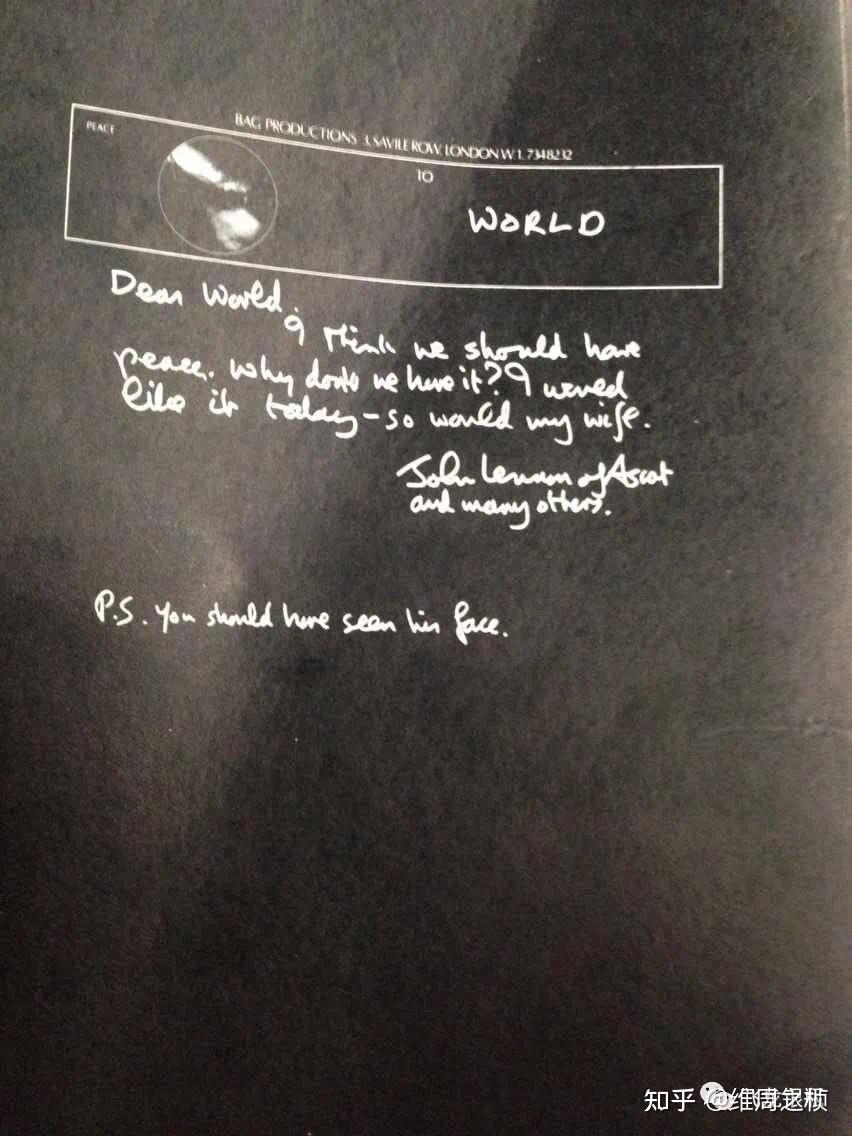 BAG PRODUCTIONS 3, SAVILE ROW, LONDON W.1. 7348232
PEACE
TO
WORLD
Dear World.
I think we should have
peace. Why don't we have it? I would
like it today - so would my wife.
John Lennon of Ascot
and many others.
P.S. You should have seen his face.
知乎 @维周返桢